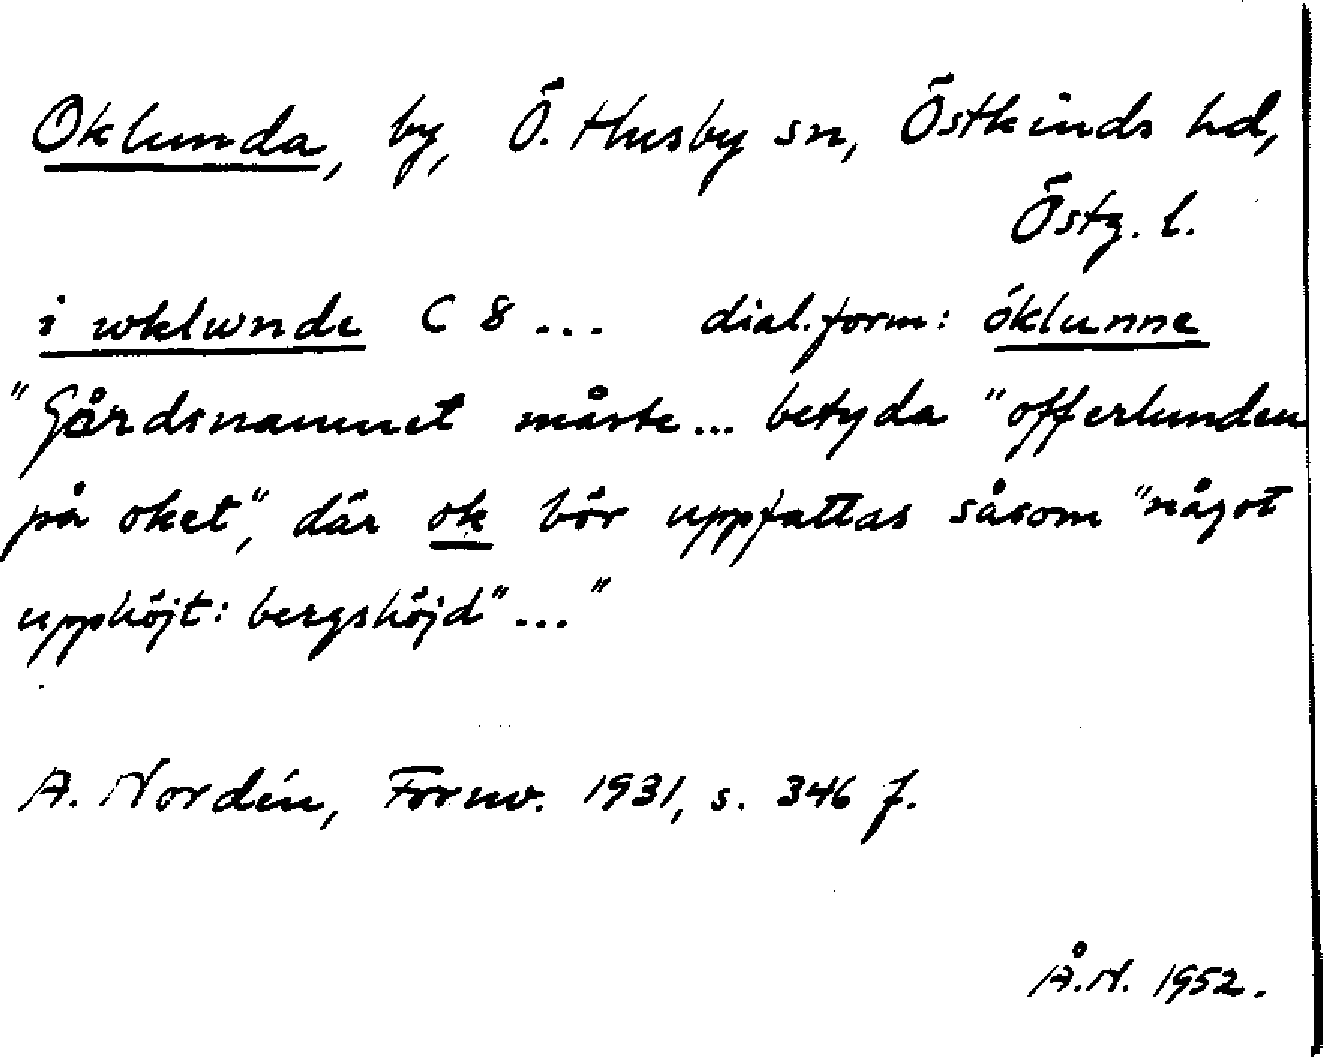 Oklunda, by, Ö. Husby sn, Östkinds hd,
Östg. l.
i wklwnde C 8 ... dial.form: óklunne
"Gårdsnamnet måste ... betyda "offerlunden
på oket", där ok bör uppfattas såsom "något
upphöjt: bergshöjd" ... "
A. Nordén, Fornv. 1931, s. 346 f.
Å.N. 1952.